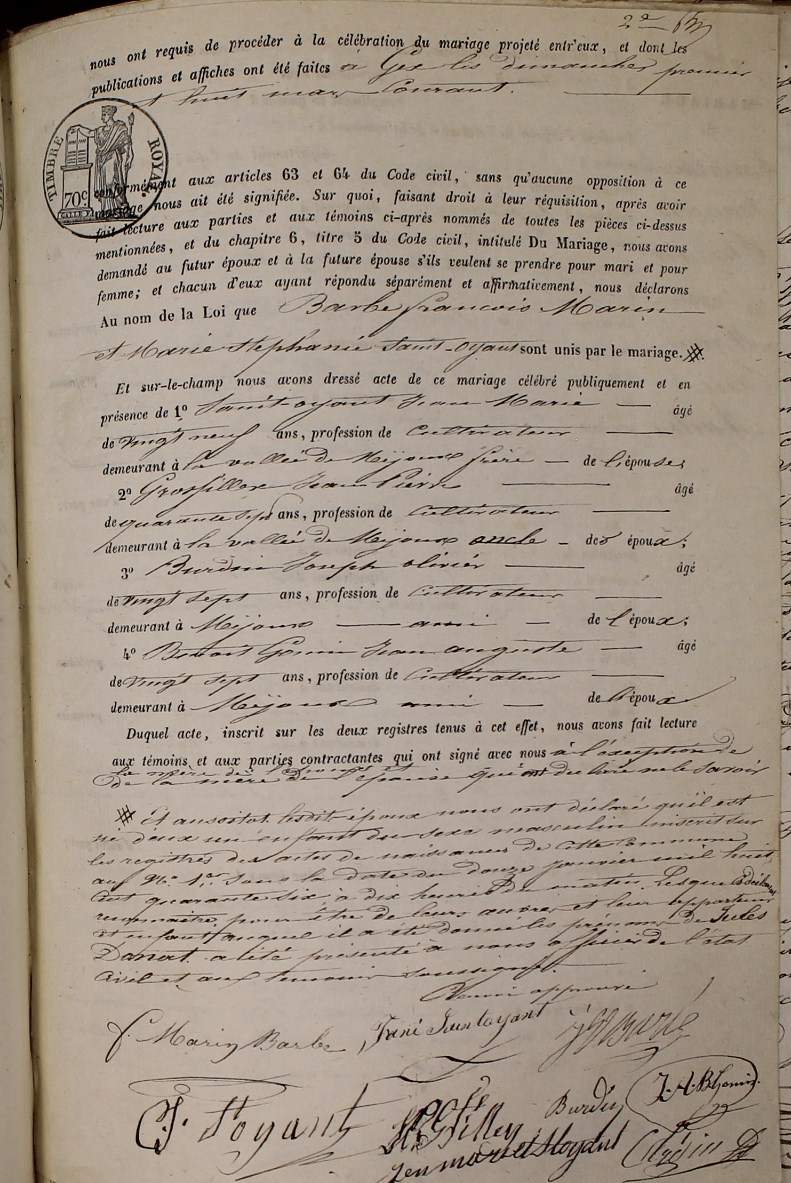 nous ont requis de procéder à la célébration du mariage projeté entr'eux, et dont les
publications et affiches ont été faites à Gex les dimanches premier
et huit mars Courant.
TIMBRE ROYAL
70 C
conformément aux articles 63 et 64 du Code civil, sans qu'aucune opposition à ce
mariage nous ait été signifiée. Sur quoi, faisant droit à leur réquisition, après avoir
fait lecture aux parties et aux témoins ci-après nommés de toutes les pièces ci-dessus
mentionnées, et du chapitre 6, titre 5 du Code civil, intitulé Du Mariage, nous avons
demandé au futur époux et à la future épouse s'ils veulent se prendre pour mari et pour
femme; et chacun d'eux ayant répondu séparément et affirmativement, nous déclarons
Au nom de la Loi que Barbe françois Marin
et Marie Stephanie Saint-oyant sont unis par le mariage.
Et sur-le-champ nous avons dressé acte de ce mariage célébré publiquement et en
présence de 1º Saint-oyant Jean Marie âgé
de vingt neuf ans, profession de Cultivateur
demeurant à la vallée de Mijoux frère de l'épouse;
2º Grosfillex Jean Pierre âgé
de quarante sept ans, profession de Cultivateur
demeurant à la vallée de Mijoux oncle des époux;
3º Burdin Joseph olivier âgé
de vingt sept ans, profession de Cultivateur
demeurant à Mijoux ami de l'époux;
4º Benoit Gonin Jean auguste âgé
de vingt sept ans, profession de Cultivateur
demeurant à Mijoux ami de l'époux
Duquel acte, inscrit sur les deux registres tenus à cet effet, nous avons fait lecture
aux témoins et aux parties contractantes qui ont signé avec nous à l'exception de
la mère de l'époux et
de la mère de l'épouse qui ont dit ne le savoir
Et aussitot lesdit époux nous ont déclaré qu'il est
né d'eux un enfant du sexe masculin inscrit sur
les registres des actes de naissances de cette Commune
au Nº 1er sous la date du douze janvier mil huit
Cent quarante six à dix heures du matin. Lesquels déclarent
reconnaitre pour être de leurs œuvres et leur appartenir
et enfant auquel il a été donné les prénoms de Jules
Donat a été présenté à nous officier de l'état
Civil et aux temoins soussignés.
approuvé
f. Marin Barbe
Saintoyant
Burdin
J. A. B. Gonin
J. S'toyant